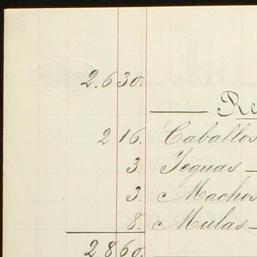 2.630.
Re
216. Caballos
3. Yeguas
3. Machos
8. Mulas
2860.